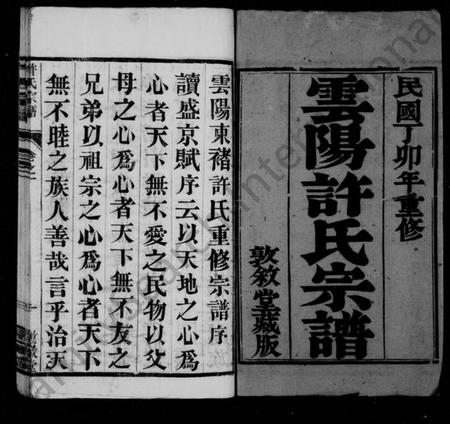 民國丁卯年重修
雲陽許氏宗譜
敦敘堂藏版
雲陽東褚許氏重修宗譜序
讀盛京賦序云以天地之心爲
心者天下無不愛之民物以父
母之心爲心者天下無不友之
兄弟以祖宗之心爲心者天下
無不睦之族人善哉言乎治天
許氏宗譜